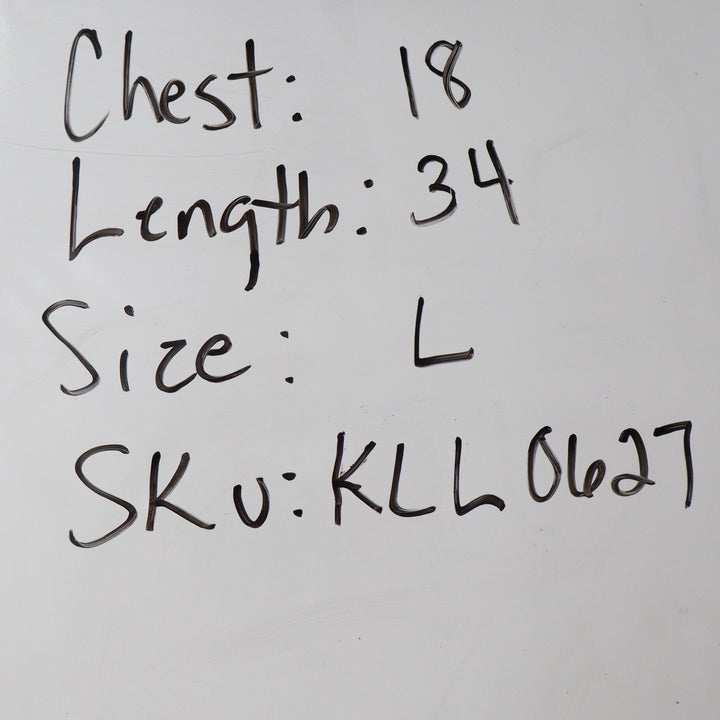 Chest: 18
Length: 34
Size: L
SKU: KLL0627